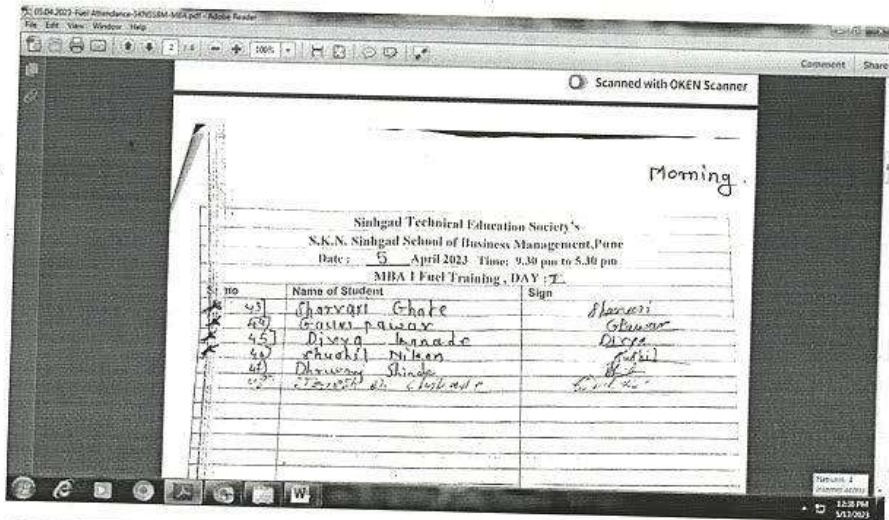 05.04.2023-Fuel Attendance-SKNSSBM-MBA.pdf - Adobe Reader
File Edit View Window Help
2 / 6 100% Comment Share
Scanned with OKEN Scanner
Morning.
Sinhgad Technical Education Society's
S.K.N. Sinhgad School of Business Management,Pune
Date : 5 April 2023 Time; 9.30 pm to 5.30 pm
MBA I Fuel Training , DAY : I
Sr no Name of Student Sign
43] Sharvari Ghate Sharvari
44] Gauri pawar GPawar
45] Divya kanade Divya
46] Shushil Nikam
47] Dhruvraj Shinde
W
12:38 PM
5/12/2023